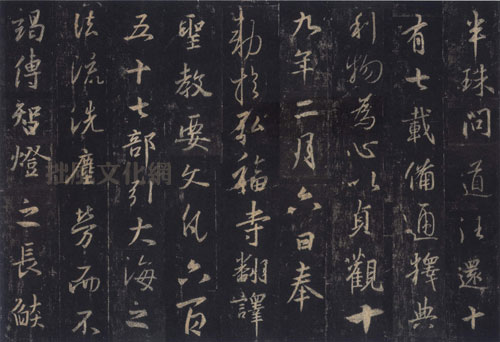 半珠問道往還十
有七載備通釋典
利物為心以貞觀十
九年二月六日奉
勅於弘福寺翻譯
聖教要文凡六百
五十七部引大海之
法流洗塵勞而不
竭傳智燈之長燄
文化網